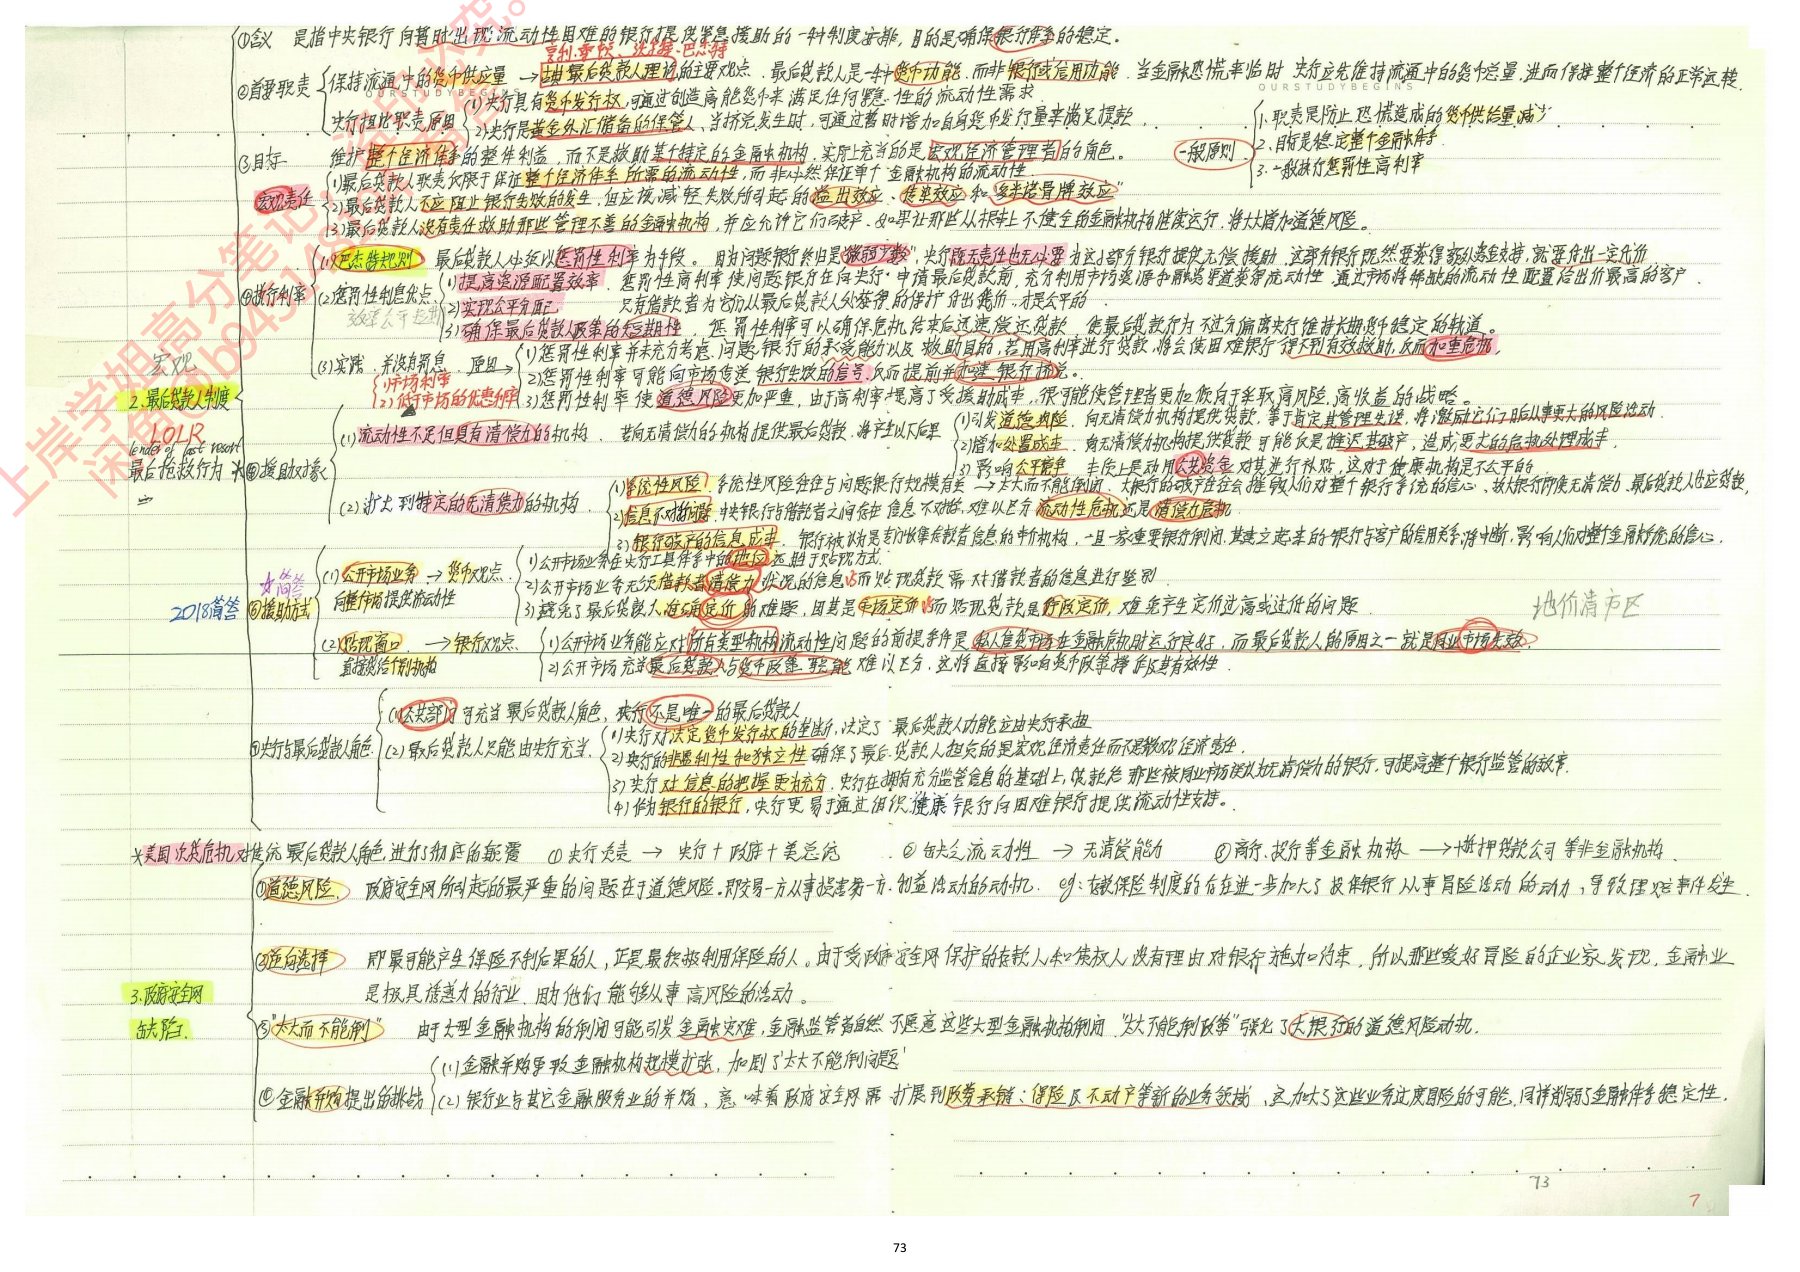 ①含义 是指中央银行向暂时出现流动性困难的银行提供紧急援助的一种制度安排，目的是确保银行体系的稳定。
亨利·桑顿、沃尔特·巴杰特
②首要职责
保持流通中的货币供应量 → 古典最后贷款人理论的主要观点．最后贷款人是一种货币功能，而非银行或信用功能．当金融恐慌来临时 央行应先维持流通中的货币总量，进而保持整个经济的正常运转．
OURSTUDYBEGINS
OURSTUDYBEGINS
央行担此职责原因
(1)央行具有货币发行权，可通过创造高能货币来满足任何紧急性的流动性需求．
(2)央行是黄金外汇储备的保管人，当挤兑发生时，可通过暂时增加自身货币发行量来满足提款．
一般原则
1.职责是防止恐慌造成的货币供给量减少
2.目标是稳定整个金融体系
3.一般执行惩罚性高利率
③目标 维护整个经济体系的整体利益，而不是救助某个特定的金融机构．实际上充当的是宏观经济管理者的角色。
宏观责任
(1)最后贷款人职责仅限于保证整个经济体系所需的流动性，而非必然保证单个金融机构的流动性
(2)最后贷款人不应阻止银行失败的发生，但应该减轻失败所引起的溢出效应、传染效应和"多米诺骨牌效应"
(3)最后贷款人没有责任救助那些管理不善的金融机构，并应允许它们破产．如果让那些从根本上不健全的金融机构继续运行，将大大增加道德风险。
④执行利率
(1)巴杰特规则 最后贷款人必须以惩罚性利率为手段。因为问题银行终归是"微弱少数"，央行既无责任也无必要为这小部分银行提供无偿援助．这部分银行既然要获得额外资金支持，就要付出一定代价
(2)惩罚性利息优点
效率 公平 短期
1)提高资源配置效率．惩罚性高利率使问题银行在向央行申请最后贷款前，充分利用市场资源和融资渠道获得流动性．通过市场将稀缺的流动性配置给出价最高的客户．
2)实现公平分配 只有借款者为它们从最后贷款人处获得的保护付出代价，才是公平的．
3)确保最后贷款人政策的短期性．惩罚性利率可以确保危机结束后迅速偿还贷款，使最后贷款行为不过分偏离央行维持长期货币稳定的轨道。
(3)实践．并没有罚息．原因→
1)市场利率
2)低于市场的优惠利率
1)惩罚性利率并未充分考虑问题银行的承受能力以及救助目的，若用高利率进行贷款，将会使困难银行得不到有效救助，反而加重危机．
2)惩罚性利率可能向市场传送银行失败的信号，反而提前并加速银行挤兑。
3)惩罚性利率使道德风险更加严重，由于高利率提高了受援助成本，很可能使管理者更加倾向于采取高风险、高收益的战略。
宏观
2.最后贷款人制度
LOLR
lender of last resort
最后抢救行为
⑤援助对象
(1)流动性不足但具有清偿力的机构．若向无清偿力的机构提供最后贷款，将产生以下后果
1)引发道德风险．向无清偿力机构提供贷款，等于肯定其管理失误，将激励它们日后从事更大的风险活动．
2)增加处置成本．向无清偿力机构提供贷款可能仅是推迟其破产，造成更大的危机处理成本．
3)影响公平竞争．本质上是动用公共资金对其进行补贴，这对于健康机构是不公平的．
(2)扩大到特定的无清偿力的机构．
1)系统性风险！系统性风险往往与问题银行规模有关 → 太大而不能倒闭．大银行的破产往往会摧毁人们对整个银行系统的信心，故大银行即使无清偿力，最后贷款人也应贷款，
2)信息不对称问题．中央银行与借款者之间存在信息不对称，难以区分流动性危机还是清偿力危机．
3)银行破产的信息成本．银行被认为是专门收集贷款者信息的中介机构，一旦一家重要银行倒闭，其建立起来的银行与客户的信用关系将中断，影响人们对整个金融系统的信心．
⑥援助方式
大简答
2018简答
(1)公开市场业务 → 货币观点．
向整个市场提供流动性
1)公开市场业务在央行工具体系中的地位远胜于贴现方式．
2)公开市场业务无须借款者清偿力状况的信息，而贴现贷款需对借款者的信息进行鉴别．
3)避免了最后贷款人准确定价的难题，因其是市场定价，而贴现贷款是行政定价，难免产生定价过高或过低的问题．
地价清市区
(2)贴现窗口 → 银行观点．
直接贷给个别机构
1)公开市场业务能应对所有类型机构流动性问题的前提条件是私人信贷市场在金融危机时运行良好，而最后贷款人的原因之一就是同业市场失效．
2)公开市场充当最后贷款人与货币政策职能难以区分，这将直接影响货币政策操作及其有效性．
⑦央行与最后贷款人角色
(1)公共部门可充当最后贷款人角色，央行不是唯一的最后贷款人
(2)最后贷款人只能由央行充当．
1)央行对决定货币发行权的垄断，决定了最后贷款人功能应由央行承担
2)央行的非盈利性和独立性确保了最后贷款人担负的是宏观经济责任而不是微观经济责任．
3)央行对信息的把握更为充分．央行在拥有充分监管信息的基础上，贷款给那些被同业市场误认为无清偿力的银行，可提高整个银行监管的效率．
4)作为银行的银行，央行更易于通过组织健康银行向困难银行提供流动性支持。
*美国次贷危机对传统最后贷款人角色进行了彻底的颠覆 ①央行负责 → 央行＋政府＋美总统 ②缺乏流动性 → 无清偿能力 ③商行、投行等金融机构 → 抵押贷款公司等非金融机构．
3.政府安全网
缺陷
①道德风险． 政府安全网所引起的最严重的问题在于道德风险．即交易一方从事损害另一方利益活动的动机．eg：存款保险制度的存在进一步加大了投保银行从事冒险活动的动力，导致理赔事件发生．
②逆向选择 即最可能产生保险不利后果的人，正是最积极利用保险的人。由于受政府安全网保护的存款人和债权人没有理由对银行施加约束，所以那些爱好冒险的企业家发现，金融业
是极具诱惑力的行业，因为他们能够从事高风险的活动。
③"太大而不能倒" 由于大型金融机构的倒闭可能引发金融灾难，金融监管者自然不愿意这些大型金融机构倒闭．"太大不能倒政策"强化了大银行的道德风险动机．
④金融并购提出的挑战
(1)金融并购导致金融机构规模扩张，加剧了"太大不能倒问题"
(2)银行业与其它金融服务业的并购，意味着政府安全网需扩展到证券承销、保险及不动产等新的业务领域，这加大了这些业务过度冒险的可能，同样削弱了金融体系稳定性．
73
7
73